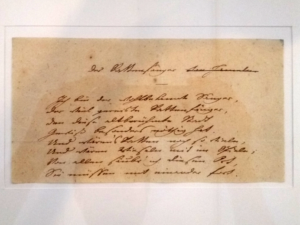 Der Rattenfänger
Ich bin der wohlbekannte Sänger,
Der viel gereiste Rattenfänger,
Den diese altberühmte Stadt
Gewiß besonders nöthig hat
Und wären's Ratten noch so viele,
Und wären Wiesel mit im Spiele,
Von allen säubr' ich diesen Ort,
Sie müssen mit einander fort.